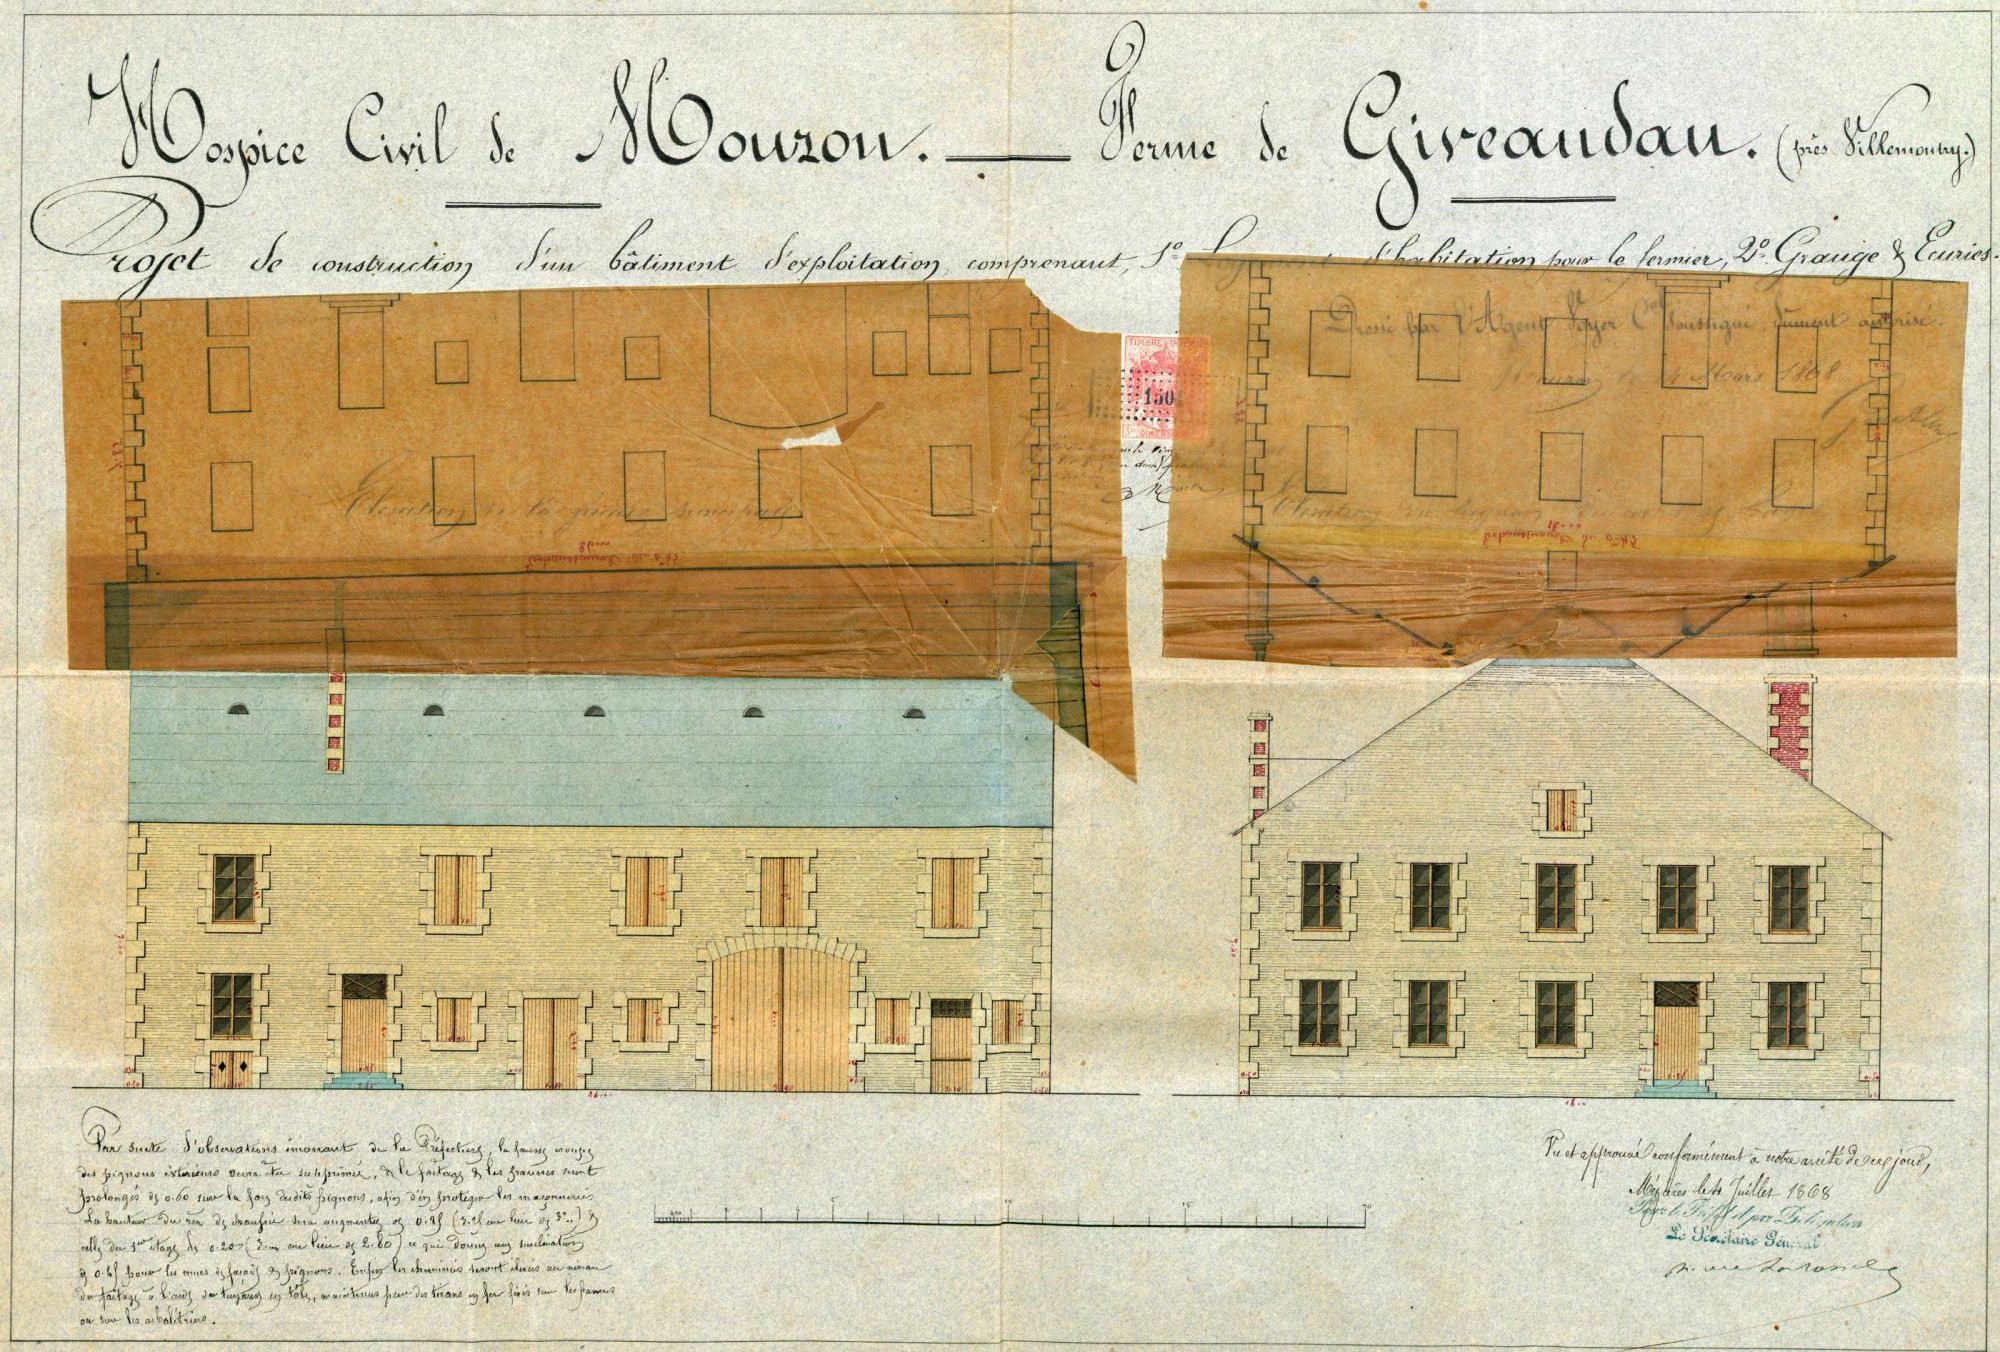 Hospice Civil de Mouzon. — Ferme de Giveaudau. (près Villemontry.)
Projet de construction d'un bâtiment d'exploitation, comprenant, 1º d'habitation pour le fermier, 2º Grange & Ecuries.
Dressé par l'Agent Voyer Cal soussigné, dûment autorisé.
Mouzon, le 24 Mars 1868
TIMBRE IMPERIAL
150
3me DIMENS
Elévation de la façade principale
Elévation du pignon
Exhaussement de 0m45
Exhaussement de 0m45
7.40
7.40
36.00
18.00
Par suite d'observations émanant de la Préfecture, la fausse croupe
des pignons extérieurs devra être supprimée, & le faîtage & les pannes seront
prolongés de 0.60 sur la face desdits pignons, afin d'en protéger les maçonneries.
La hauteur du rez de chaussée sera augmentée de 0.25 (3.25 au lieu de 3m..) &
celle du 1er étage de 0.20 (3.00 au lieu de 2.80) ce qui donne une surélévation
de 0.45 pour les murs de façade & pignons. Enfin les cheminées seront élevées au niveau
du faîtage à l'aide de tuyaux en tôle, maintenus par des tirans en fer fixés sur les pannes
ou sur les arbalétriers.
5 10 15 20
Vu et approuvé conformément à notre arrêté de ce jour,
Mézières le 4 Juillet 1868
Pour le Préfet et par Délégation
Le Secrétaire Général